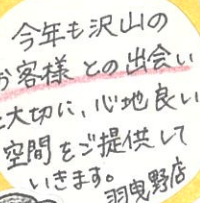 今年も沢山の
お客様との出会い
を大切に、心地良い
空間をご提供して
いきます。
羽曳野店